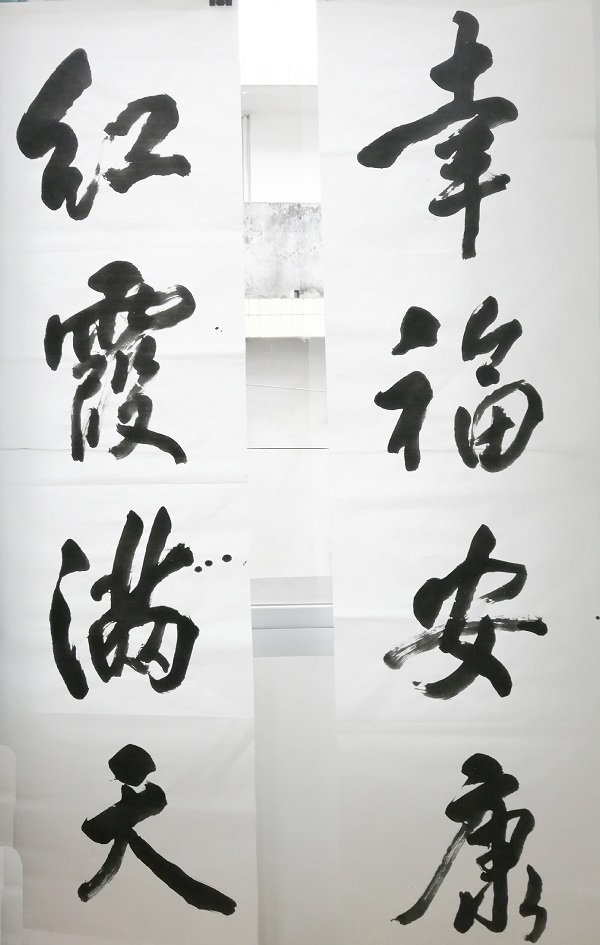 幸福安康
红霞满天